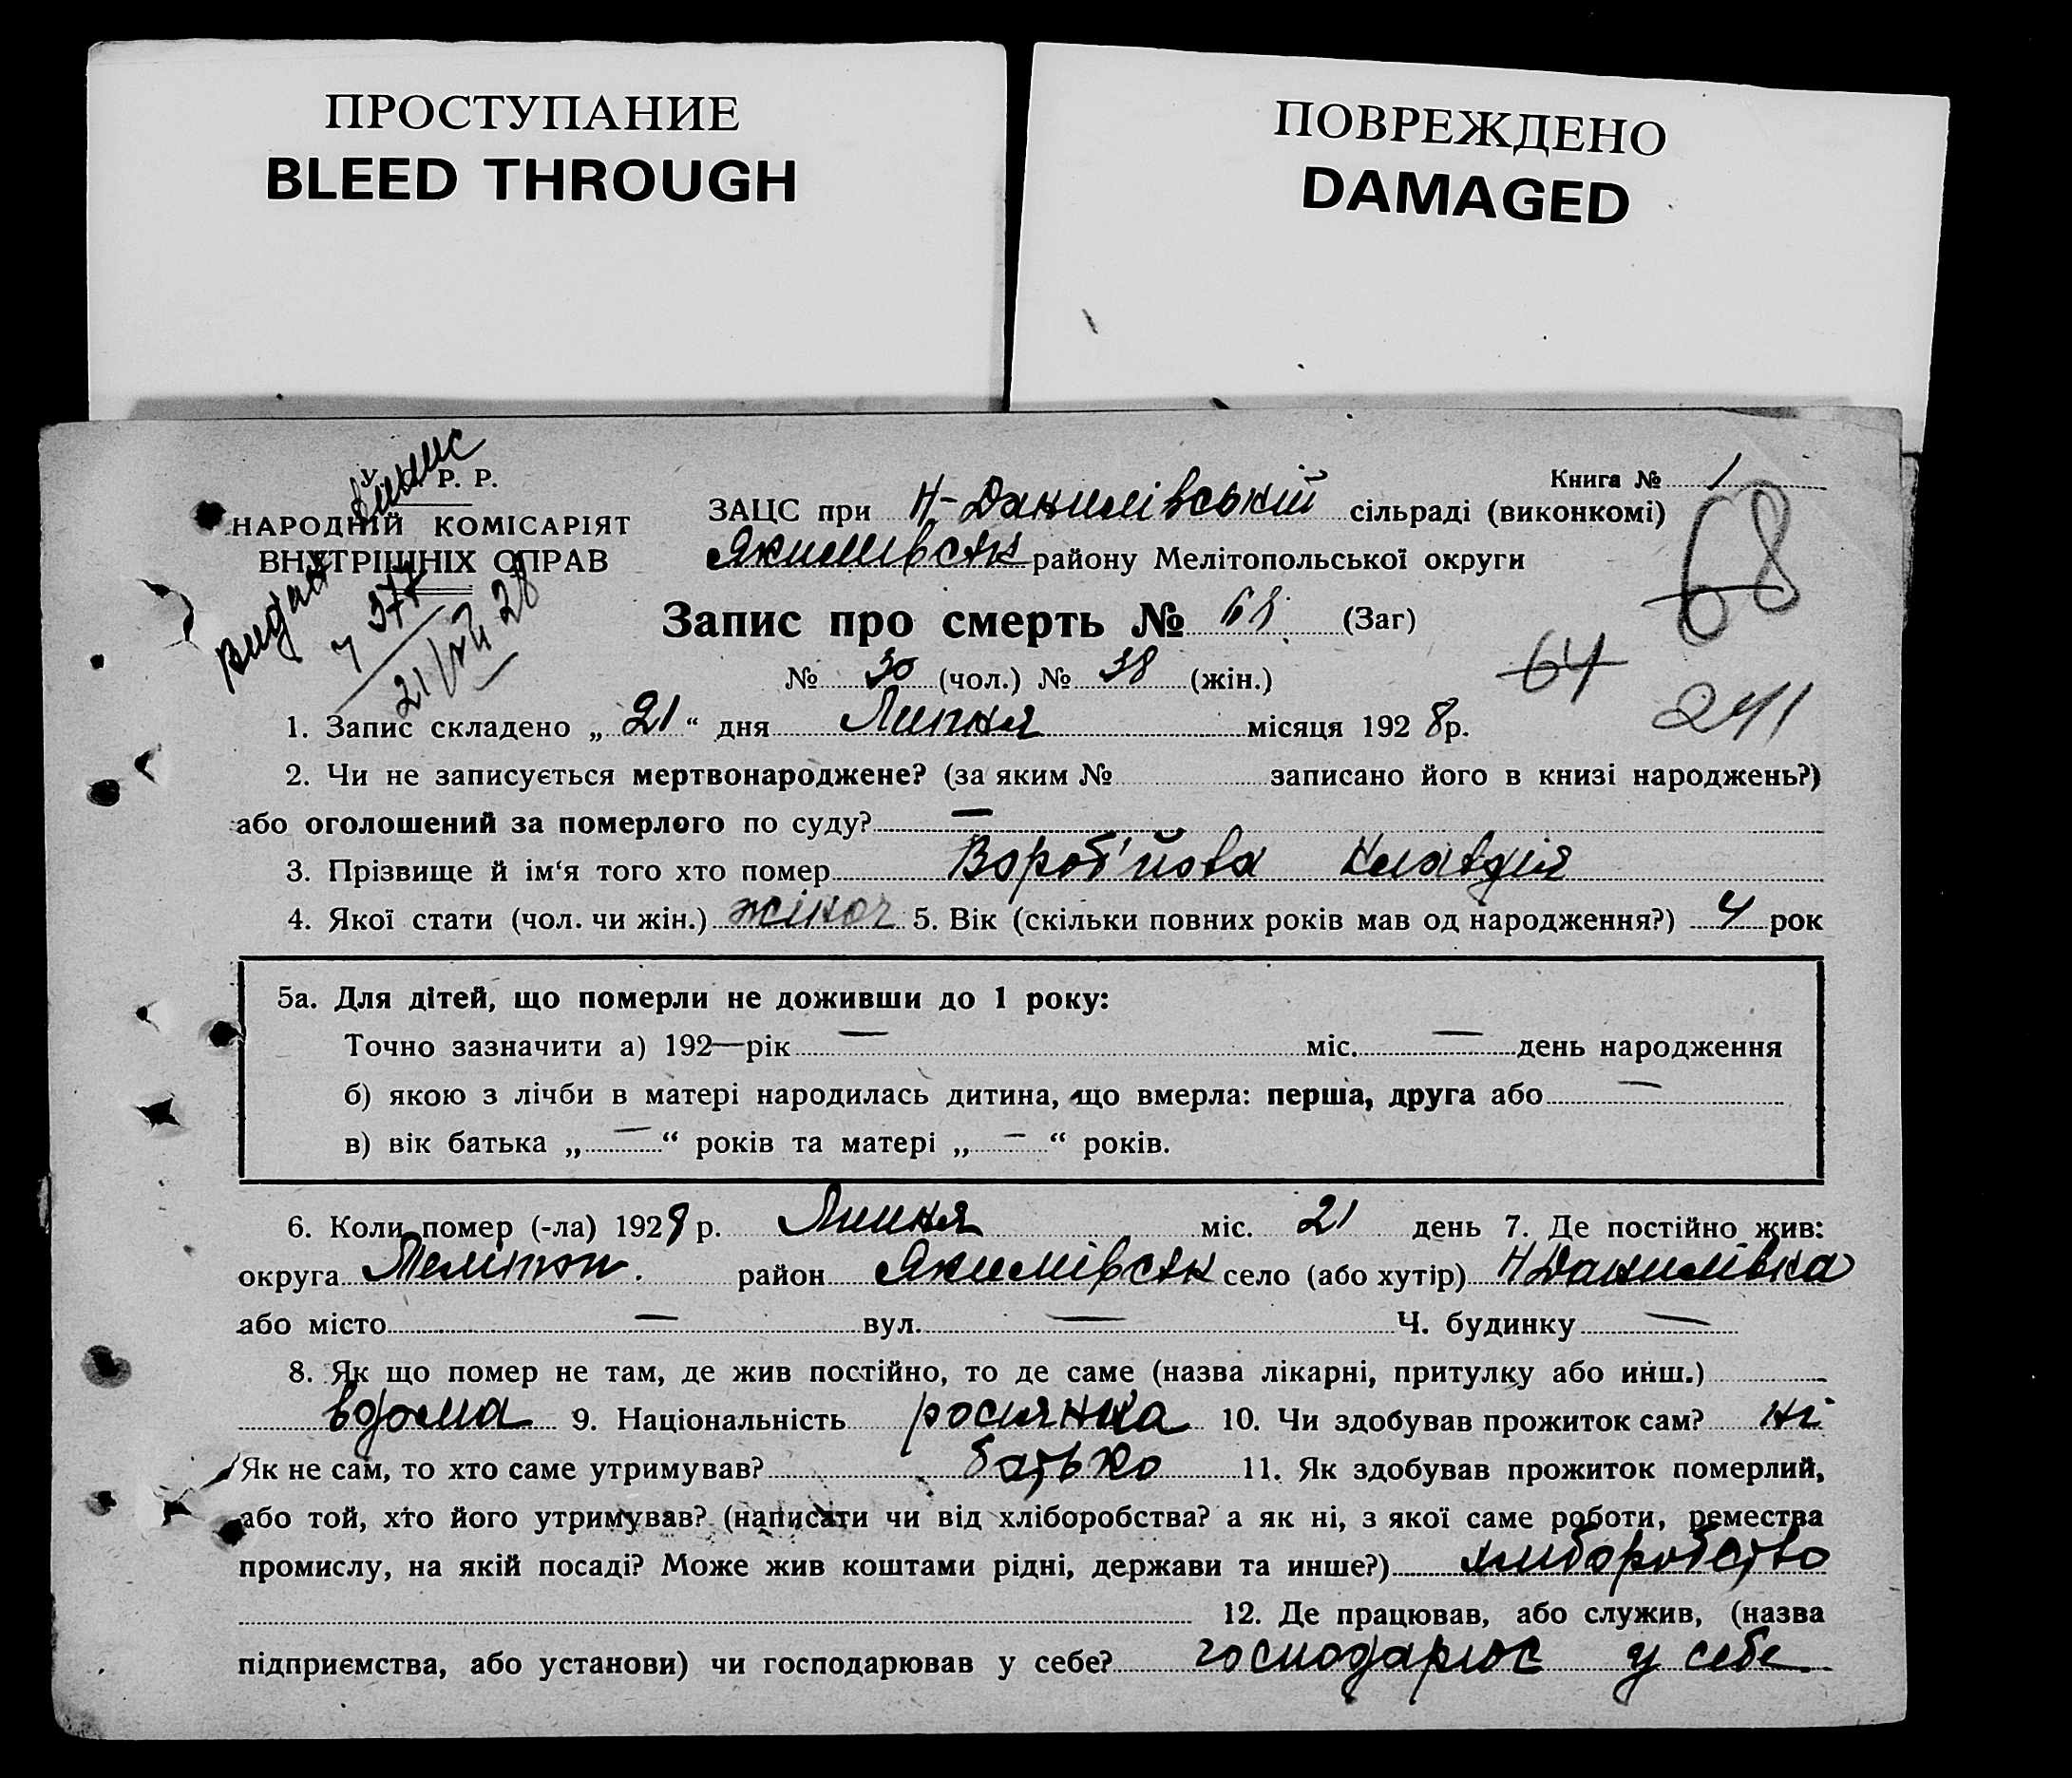 ПРОСТУПАНИЕ
BLEED THROUGH
ПОВРЕЖДЕНО
DAMAGED
У. Р. Р.
НАРОДНІЙ КОМІСАРІЯТ
ВНУТРІШНІХ СПРАВ
Видан
випис
ч 377
21/VII 28
Книга № 1
ЗАЦС при Н-Данилівській сільраді (виконкомі)
Якимівськ району Мелітопольської округи
68
Запис про смерть № 68 (Заг)
№ 30 (чол.) № 38 (жін.)
64
241
1. Запис складено „ 21 “ дня Липня місяця 192 8 р.
2. Чи не записується мертвонароджене? (за яким № записано його в книзі народжень?)
або оголошений за померлого по суду? —
3. Прізвище й ім‘я того хто помер Вороб'йова Клавдія
4. Якої стати (чол. чи жін.) жіноч 5. Вік (скільки повних років мав од народження?) 4 рок
5а. Для дітей, що померли не доживши до 1 року:
Точно зазначити а) 192—рік — міс. — день народження
б) якою з лічби в матері народилась дитина, що вмерла: перша, друга або —
в) вік батька „ — “ років та матері „ — “ років.
6. Коли помер (-ла) 1928 р. Липня міс. 21 день 7. Де постійно жив:
округа Мелітоп. район Якимівськ село (або хутір) Н Данилівка
або місто — вул. — Ч. будинку —
8. Як що помер не там, де жив постійно, то де саме (назва лікарні, притулку або инш.)
вдома 9. Національність росіянка 10. Чи здобував прожиток сам? ні
Як не сам, то хто саме утримував? батько 11. Як здобував прожиток померлий,
або той, хто його утримував? (написати чи від хліборобства? а як ні, з якої саме роботи, ремества
промислу, на якій посаді? Може жив коштами рідні, держави та инше?) хліборобство
12. Де працював, або служив, (назва
підприємства, або установи) чи господарював у себе? господарює у себе